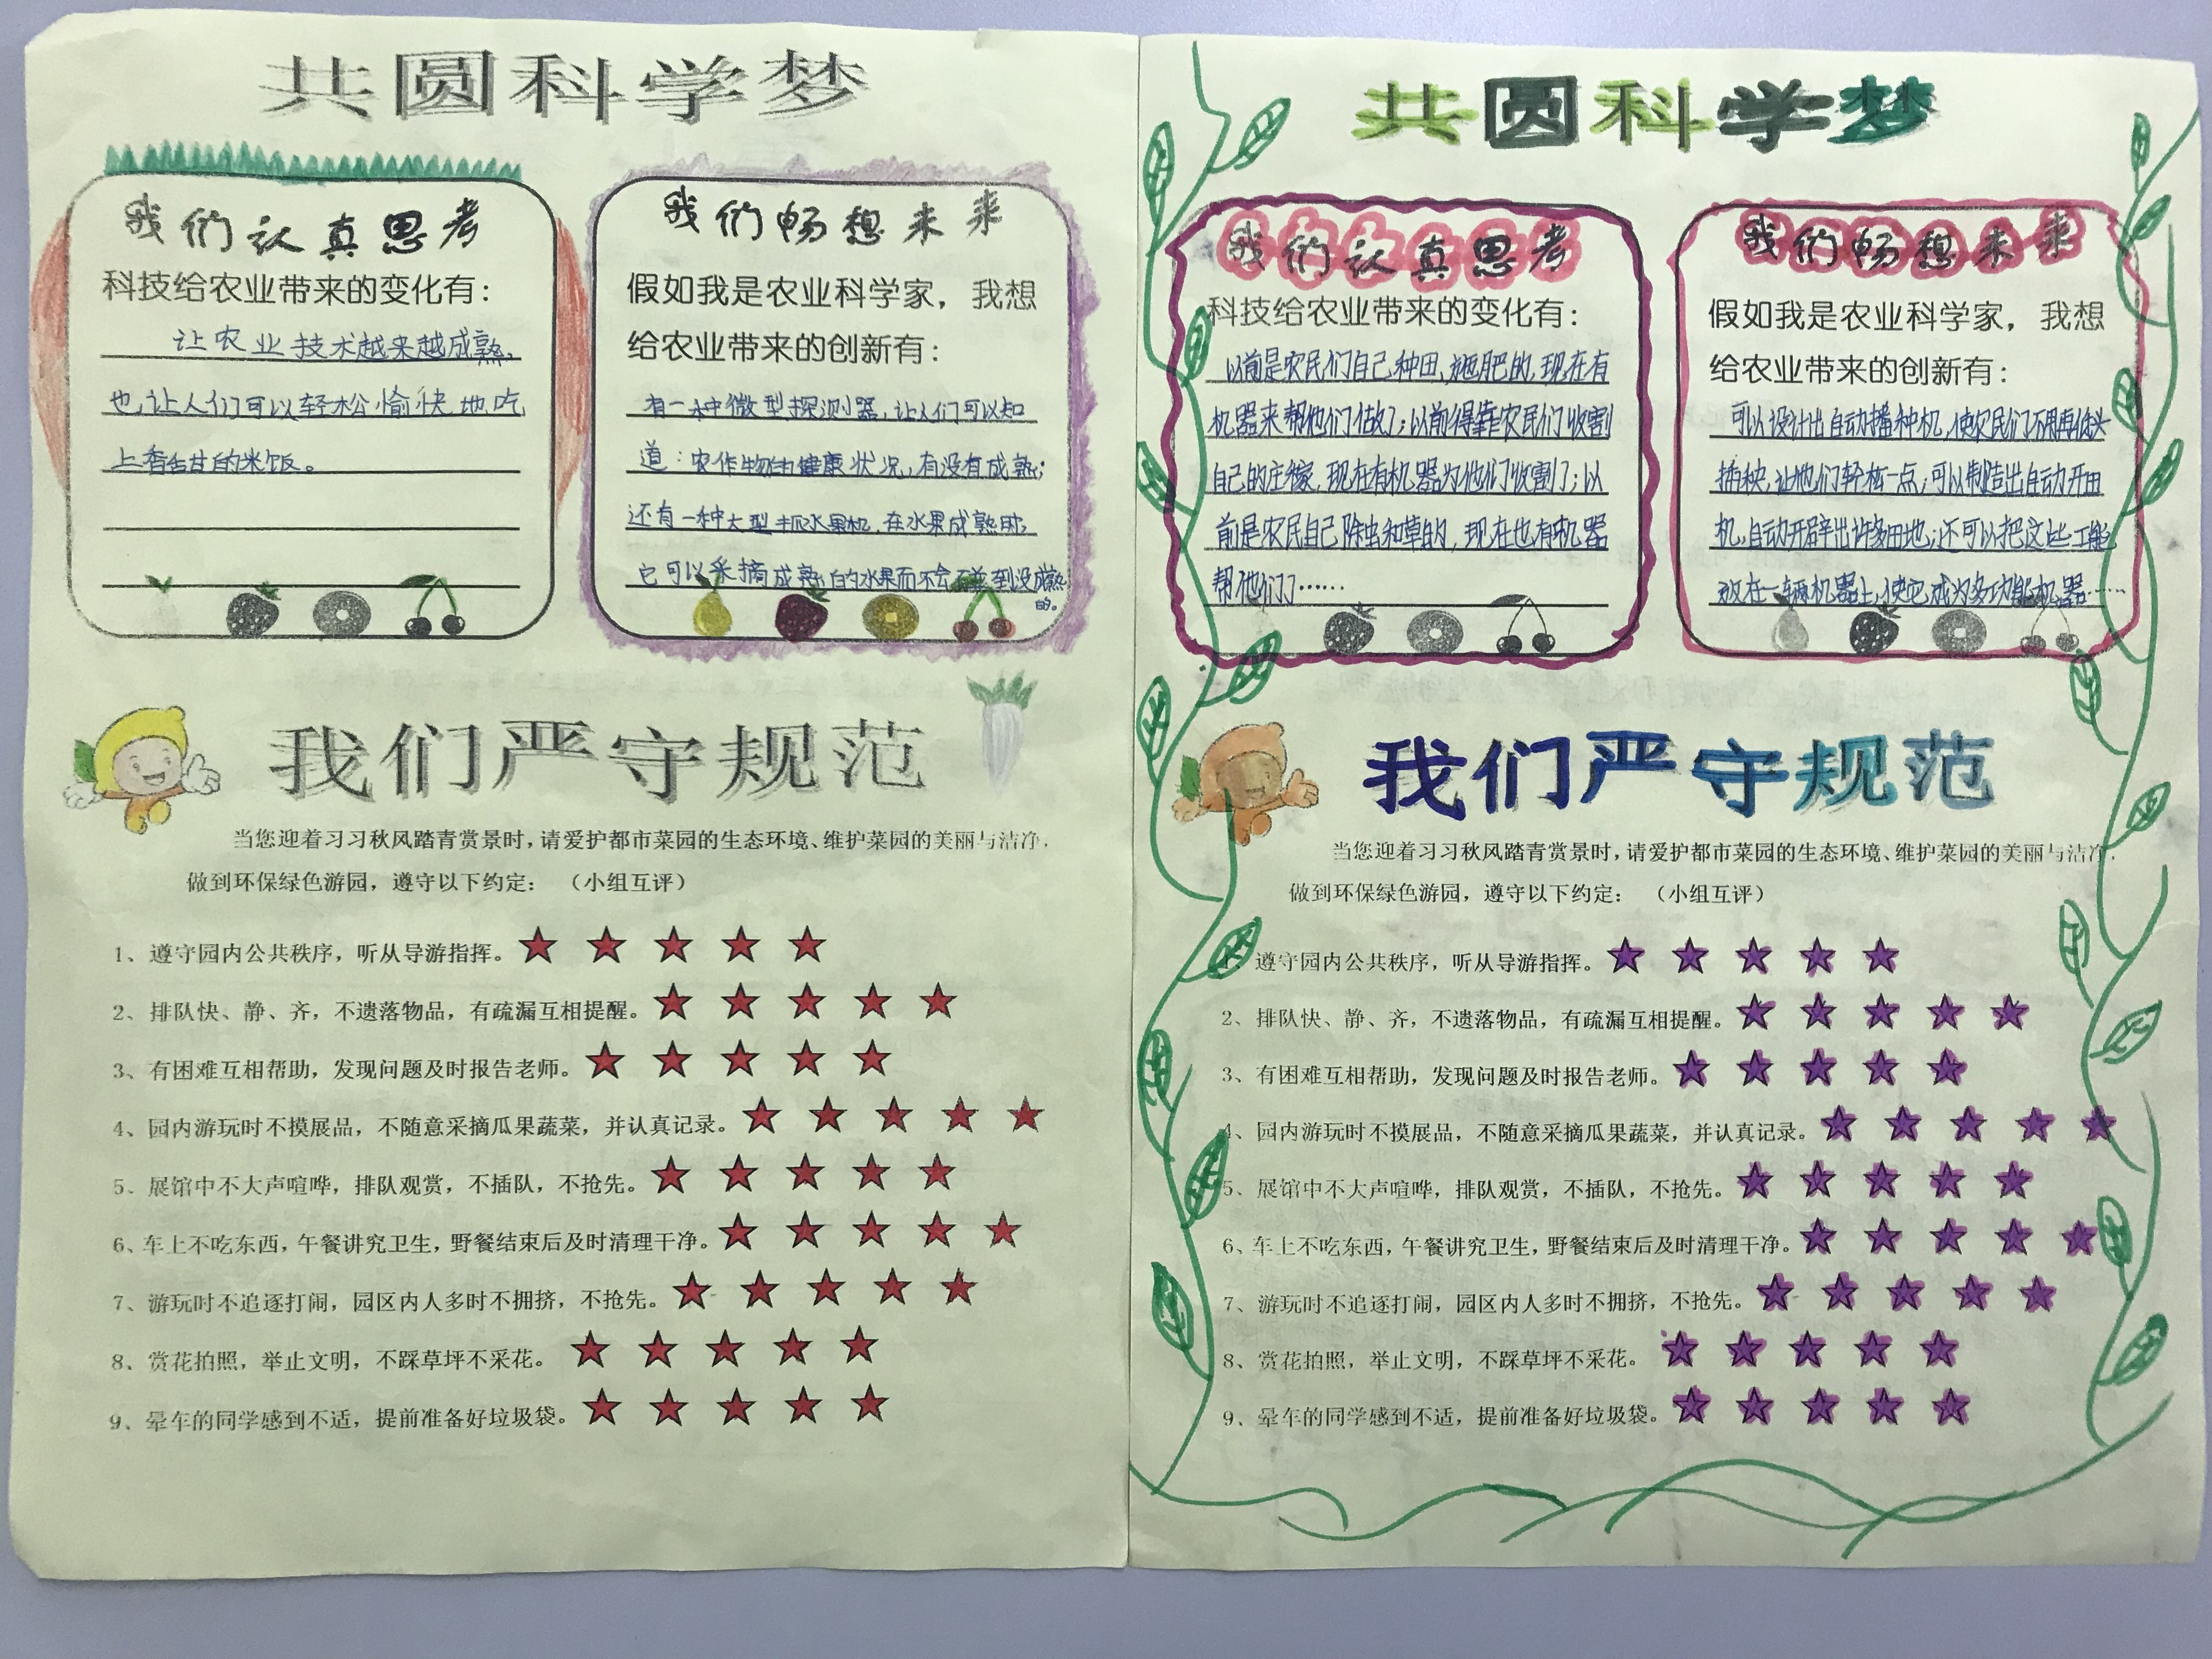 共圆科学梦
我们认真思考
科技给农业带来的变化有：
让农业技术越来越成熟，
也让人们可以轻松愉快地吃
上香甘的米饭。
我们畅想未来
假如我是农业科学家，我想
给农业带来的创新有：
有一种微型探测器，让人们可以知
道：农作物的健康状况，有没有成熟；
还有一种大型抓水果机，在水果成熟时，
它可以采摘成熟的水果而不会弄到没成熟
的。
我们严守规范
当您迎着习习秋风踏青赏景时，请爱护都市菜园的生态环境、维护菜园的美丽与洁净，
做到环保绿色游园，遵守以下约定：（小组互评）
1、遵守园内公共秩序，听从导游指挥。★ ★ ★ ★ ★
2、排队快、静、齐，不遗落物品，有疏漏互相提醒。★ ★ ★ ★ ★
3、有困难互相帮助，发现问题及时报告老师。★ ★ ★ ★ ★
4、园内游玩时不摸展品，不随意采摘瓜果蔬菜，并认真记录。★ ★ ★ ★ ★
5、展馆中不大声喧哗，排队观赏，不插队，不抢先。★ ★ ★ ★ ★
6、车上不吃东西，午餐讲究卫生，野餐结束后及时清理干净。★ ★ ★ ★ ★
7、游玩时不追逐打闹，园区内人多时不拥挤，不抢先。★ ★ ★ ★ ★
8、赏花拍照，举止文明，不踩草坪不采花。★ ★ ★ ★ ★
9、晕车的同学感到不适，提前准备好垃圾袋。★ ★ ★ ★ ★
共圆科学梦
我们认真思考
科技给农业带来的变化有：
以前是农民们自己种田、施肥的，现在有
机器来帮他们做了；以前得靠农民们收割
自己的庄稼，现在有机器为他们收割了；以
前是农民自己除虫和草的，现在也有机器
帮他们了……
我们畅想未来
假如我是农业科学家，我想
给农业带来的创新有：
可以设计出自动播种机，使农民们不用再低头
插秧，让他们轻松一点；可以制造出自动开田
机，自动开辟出许多田地；还可以把这些工能
放在一辆机器上，使它成为多功能机器……
我们严守规范
当您迎着习习秋风踏青赏景时，请爱护都市菜园的生态环境、维护菜园的美丽与洁净，
做到环保绿色游园，遵守以下约定：（小组互评）
1、遵守园内公共秩序，听从导游指挥。★ ★ ★ ★ ★
2、排队快、静、齐，不遗落物品，有疏漏互相提醒。★ ★ ★ ★ ★
3、有困难互相帮助，发现问题及时报告老师。★ ★ ★ ★ ★
4、园内游玩时不摸展品，不随意采摘瓜果蔬菜，并认真记录。★ ★ ★ ★ ★
5、展馆中不大声喧哗，排队观赏，不插队，不抢先。★ ★ ★ ★ ★
6、车上不吃东西，午餐讲究卫生，野餐结束后及时清理干净。★ ★ ★ ★ ★
7、游玩时不追逐打闹，园区内人多时不拥挤，不抢先。★ ★ ★ ★ ★
8、赏花拍照，举止文明，不踩草坪不采花。★ ★ ★ ★ ★
9、晕车的同学感到不适，提前准备好垃圾袋。★ ★ ★ ★ ★